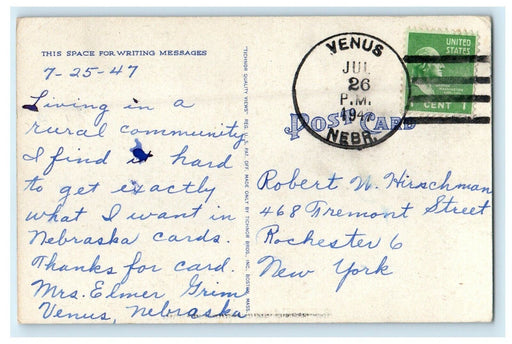 THIS SPACE FOR WRITING MESSAGES
7-25-47
Living in a
rural community
I find it hard
to get exactly
what I want in
Nebraska cards.
Thanks for card.
Mrs. Elmer Grim
Venus, Nebraska
"TICHNOR QUALITY VIEWS" REG. U. S. PAT. OFF. MADE ONLY BY TICHNOR BROS., INC., BOSTON, MASS.
VENUS
JUL
26
P.M.
1947
NEBR.
UNITED
STATES
CENT 1
POST CARD
Robert W. Hirschman
468 Fremont Street
Rochester 6
New York